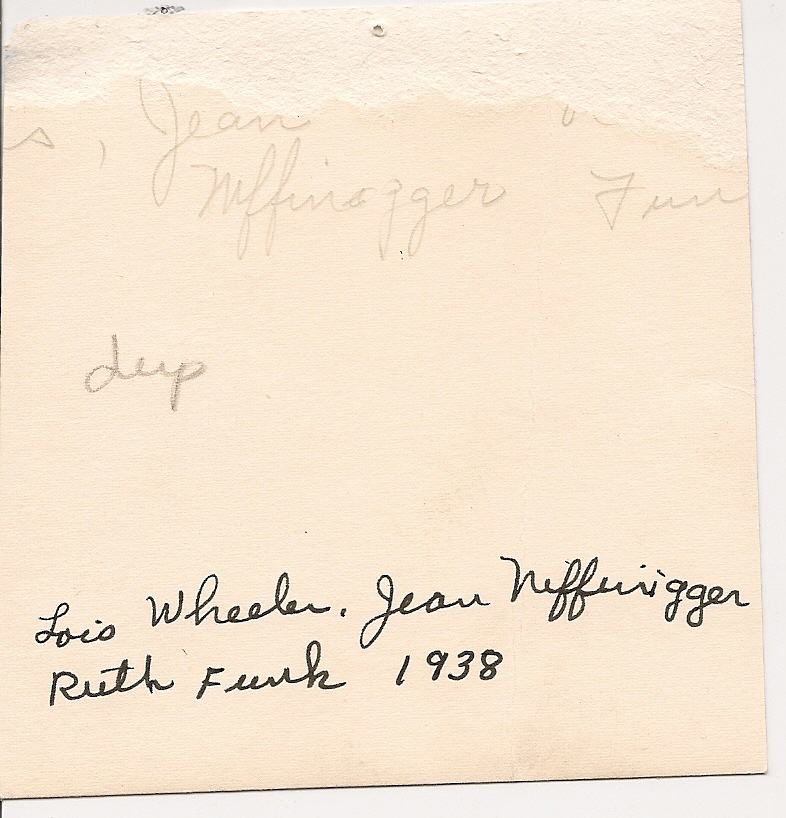 s, Jean
Neffinegger Fun
dup
Lois Wheeler, Jean Neffinigger
Ruth Funk 1938